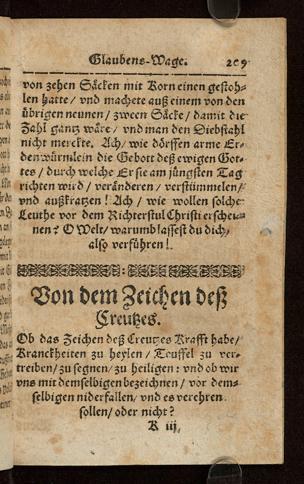 Glaubens-Wage. 209
von zehen Säcken mit Korn einen gestoh-
len hatte / vnd machete auß einem von den
übrigen neunen / zween Säcke / damit die
Zahl gantz wäre / vnd man den Diebstahl
nicht merckte. Ach / wie dörffen arme Er-
denwürmlein die Gebott deß ewigen Got-
tes / durch welche Er sie am jüngsten Tag
richten wird / veränderen / verstümmelen /
vnd außkratzen! Ach / wie wollen solche
Leuthe vor dem Richterstul Christi erschei-
nen? O Welt / warumb lassest du dich /
also verführen!
Von dem Zeichen deß
Creutzes.
Ob das Zeichen deß Creutzes Krafft habe /
Kranckheiten zu heylen / Teuffel zu ver-
treiben / zu segnen / zu heiligen: vnd ob wir
vns mit demselbigen bezeichnen / vor dem-
selbigen niderfallen / vnd es verehren
sollen / oder nicht?
K iij